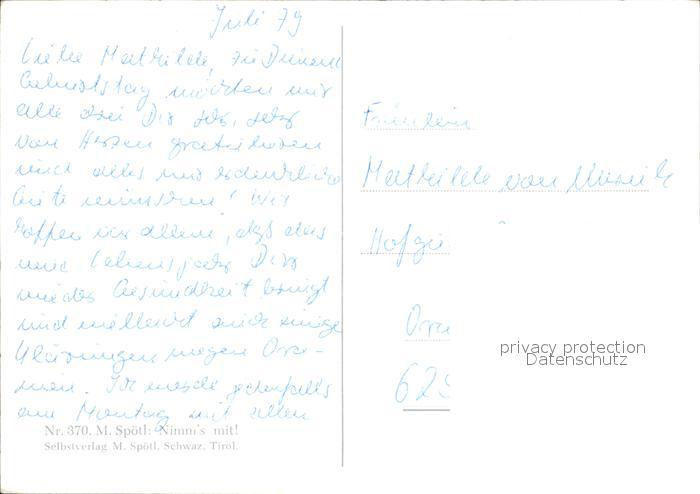 Juli 79
Liebe Mathilde, zu Deinem
Geburtstag möchten wir
alle drei Dir sehr, sehr
von Herzen gratulieren
und alles nur erdenkliche
Gute wünschen! Wir
hoffen vor allem, daß das
neue Lebensjahr Dir
wieder Gesundheit bringt
und vielleicht auch einige
Klärungen wegen
Ich werde jedenfalls
am Montag mit allen
Nr. 370. M. Spötl: Nimm's mit!
Selbstverlag M. Spötl, Schwaz, Tirol.
Fräulein
Mathilde von
Hofgu
625
privacy protection
Datenschutz